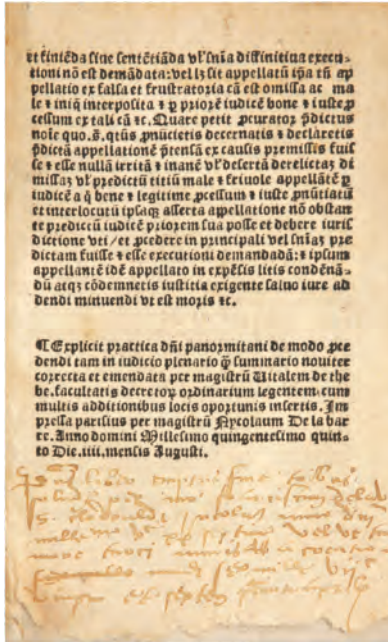 et finiēda sine sentētiāda vl' snīa diffinitiua execu-
tioni nō est demādata: vel lꝫ sit appellatū ip̄a tn̄ ap
pellatio ex falsa et frustratoria cā est omissa ac ma
le ⁊ iniq̄ interposita ⁊ ꝑ priorē iudicē bone ⁊ iuste ꝓ
cessum ex tali cā ⁊c. Quare petit ꝓcurator p̄dictus
noīe quo.s̄. qtūs ꝓnūcietis decernatis ⁊ declaretis
p̄dictā appellationē p̄tensā ex causis premissis fuis
se ⁊ esse nullā irritā ⁊ inanē vl' desertā derelictaꝫ di
missaꝫ vl' predictū titiū male ⁊ friuole appellātē ꝑ
iudicē a q̄ bene ⁊ legitime ꝓcessum ⁊ iuste ꝓnūtiatū
et interlocutū ipsaqꝫ asserta appellatione nō obstan
te predictū iudicē priorem sua posse et debere iuris
dictione vti/et ꝓcedere in principali vel snīaꝫ pre
dictam fuisse ⁊ esse executioni demandadā: ⁊ ipsum
appellantē idē appellato in expēsis litis condēnā-
dū atqꝫ cōdemnetis iustitia exigente saluo iure ad
dendi minuendi vt est moris ⁊c.
¶ Explicit practica dn̄i panormitani de modo ꝓce
dendi tam in iudicio plenario q̄ꝫ summario nouiter
correcta et emendata per magistrū Uitalem de the
be. facultatis decretoꝝ ordinarium legentem: cum
multis additionibus locis oportunis insertis. Im
pressa parisius per magistrū Nycolaum De la bar
re. Anno domini Millesimo quingentesimo quin-
to Die.iiii. mensis Augusti.